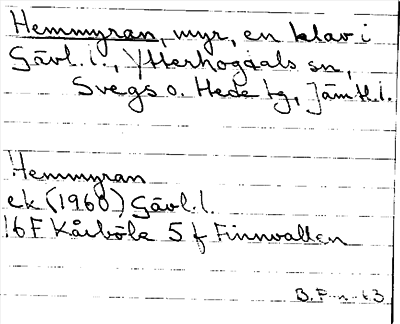 Hemmyran, myr, en klav i
Gävl. l., Ytterhogdals sn,
Svegs o. Hede tg, Jämtl. l.
Hemmyran
ek (1960) Gävl. l.
16F Kårböle 5 f Finnvallen